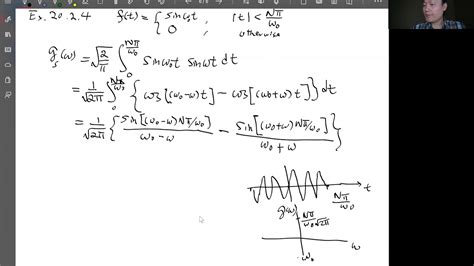 Ex. 20.2.4 f(t) = { sin ω₀t |t| < Nπ/ω₀
0, otherwise
g_s(ω) = √(2/π) ∫₀^(Nπ/ω₀) sin ω₀t sin ωt dt
= 1/√(2π) ∫₀^(Nπ/ω₀) { cos[(ω₀-ω)t] - cos[(ω₀+ω)t] } dt
= 1/√(2π) { sin[(ω₀-ω)Nπ/ω₀] / (ω₀-ω) - sin[(ω₀+ω)Nπ/ω₀] / (ω₀+ω) }
t
Nπ/ω₀
g(ω)
Nπ/(ω₀√(2π))
ω₀
ω